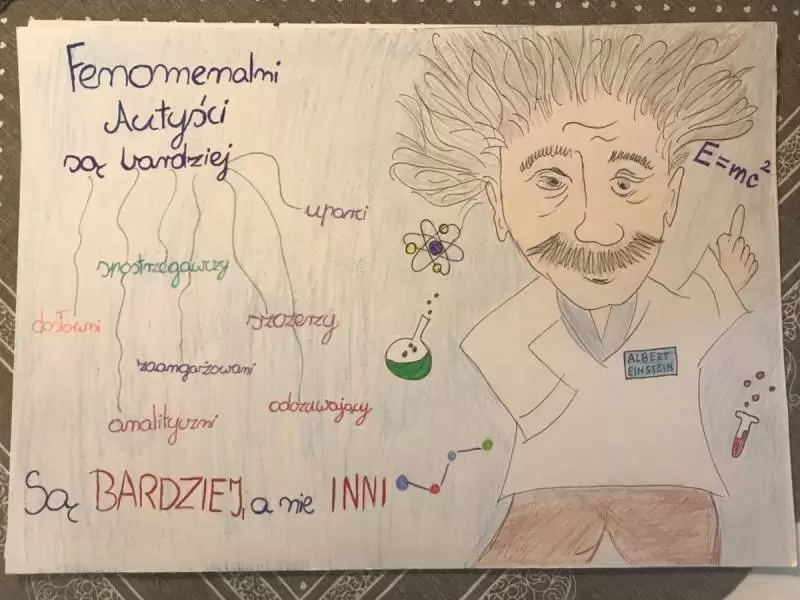 Fenomenalni
Autyści
są bardziej
uparci
spostrzegawczy
dosłowni
szczerzy
zaangażowani
odczuwający
analityczni
Są BARDZIEJ, a nie INNI
E=mc²
ALBERT
EINSTEIN